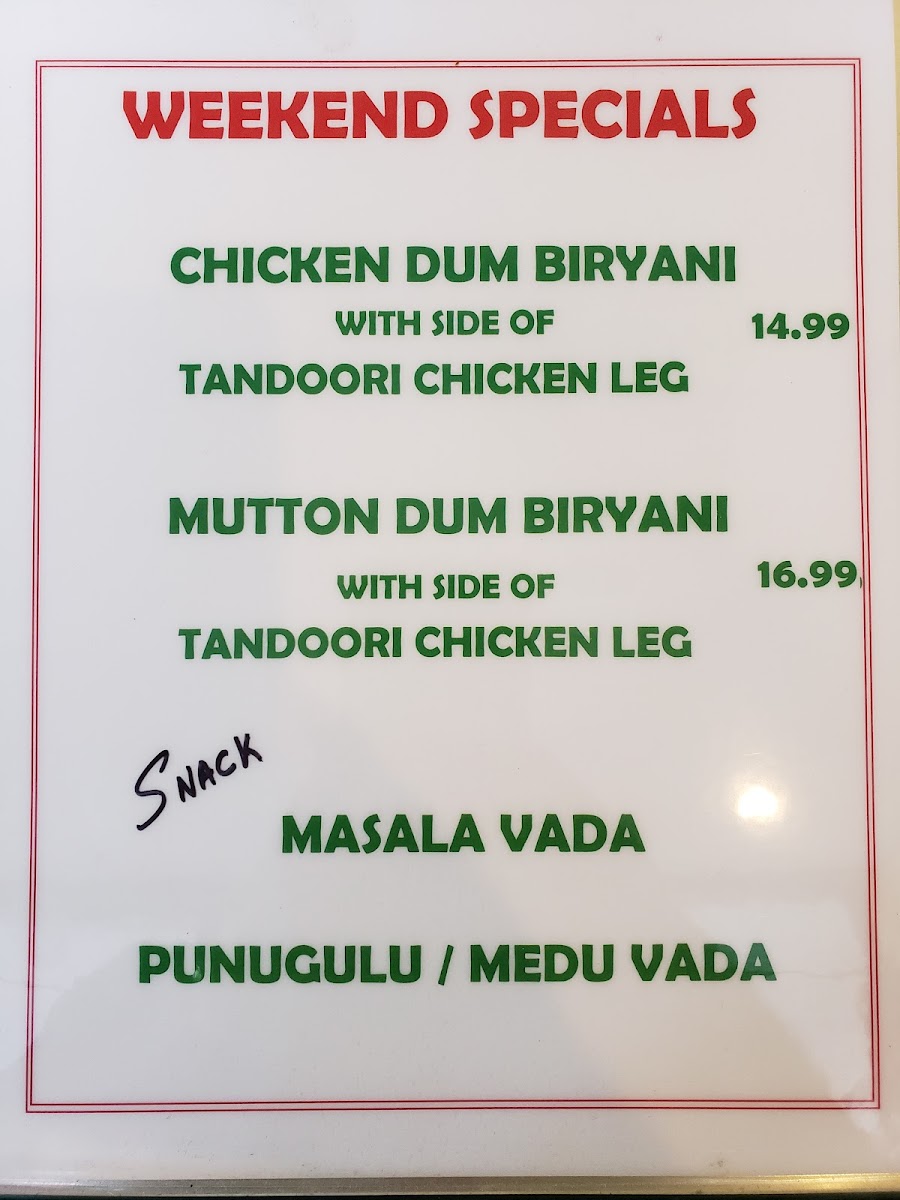 WEEKEND SPECIALS
CHICKEN DUM BIRYANI
WITH SIDE OF
14.99
TANDOORI CHICKEN LEG
MUTTON DUM BIRYANI
WITH SIDE OF
16.99
TANDOORI CHICKEN LEG
SNACK
MASALA VADA
PUNUGULU / MEDU VADA